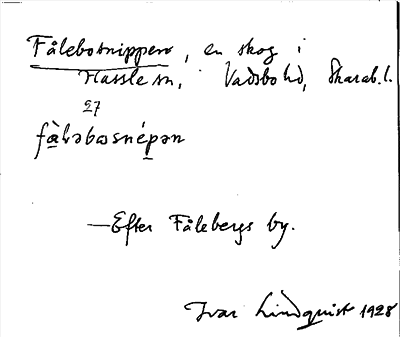 Fålebosnippen, en skog i
Hassle sn, Vadsbo hd, Skarab. l.
27
fàləbosnépən
—Efter Fålebergs by.
Ivar Lindquist 1928